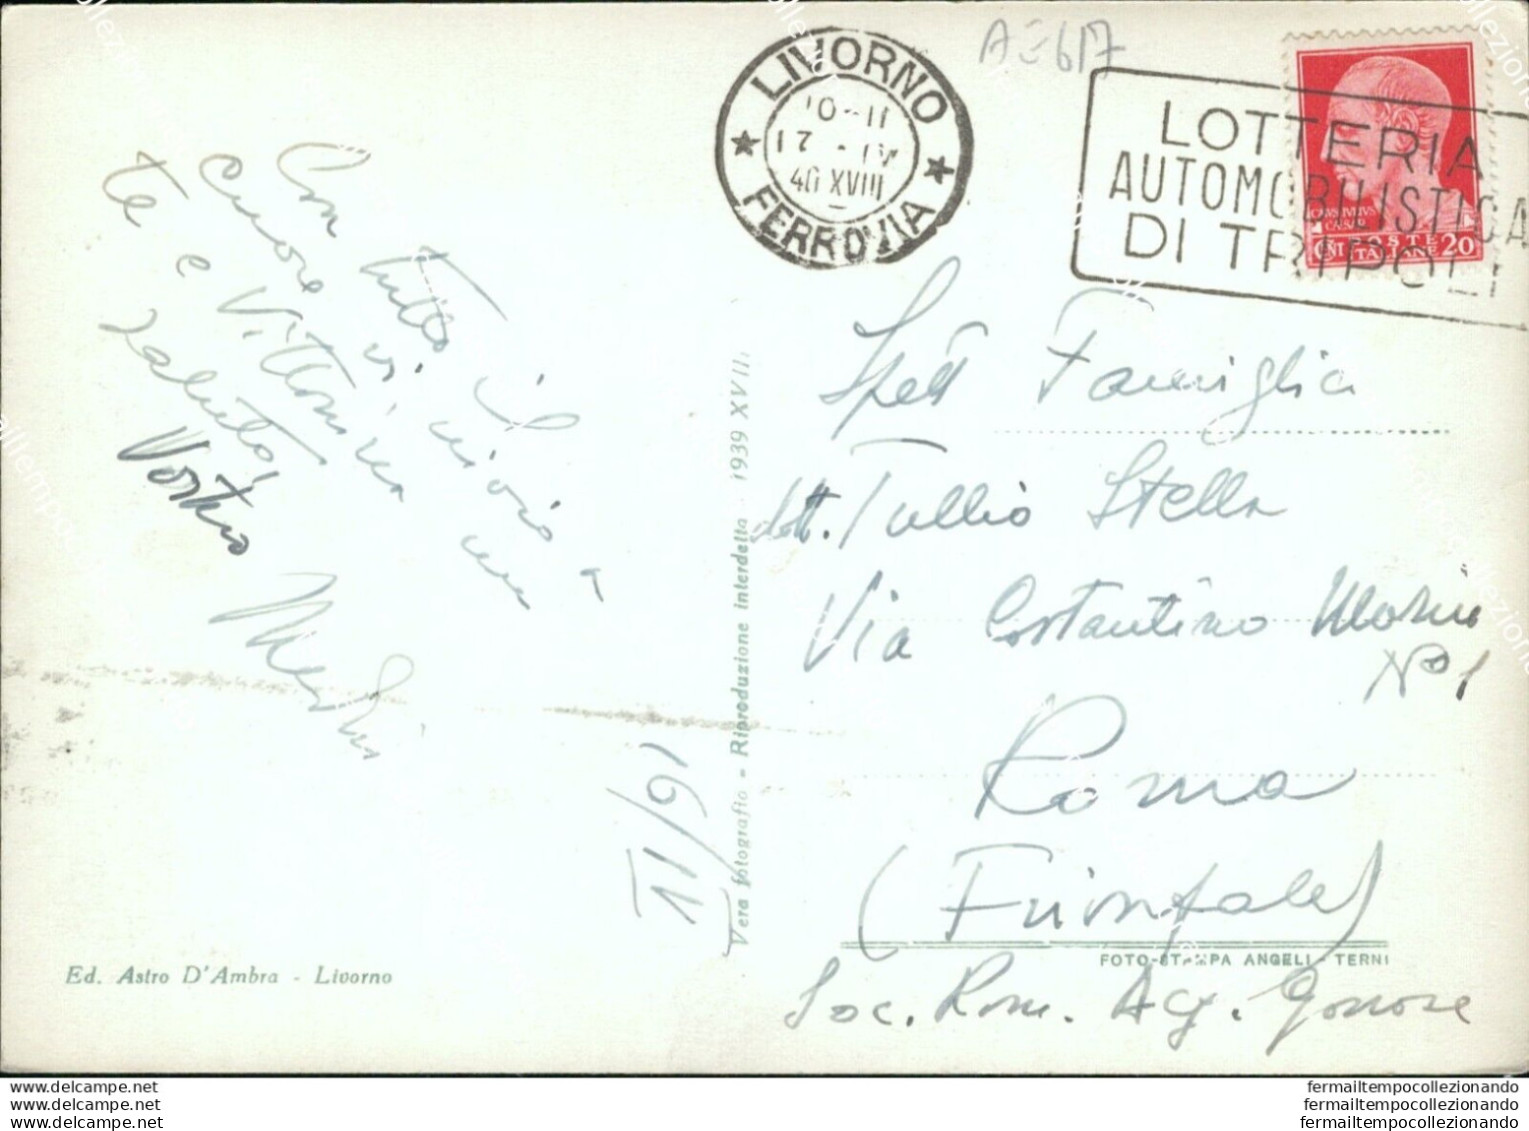 AE617
LIVORNO
10-11
17 - IV
40 XVIII
FERROVIA
LOTTERIA
AUTOMOBILISTICA
DI TRIPOLI
POSTE
ITALIANE 20
Con tutto il
cuore vi invio a
te e Vittorina un
saluto,
Vostro
16/IV
Vera fotografia - Riproduzione interdetta - 1939 XVIII
Spett Famiglia
dott. Tullio Stella
Via Costantino Morin
N° 1
Roma
Soc. Rom.
Ed. Astro D'Ambra - Livorno
FOTO-STAMPA ANGELI - TERNI
delcampe.net
delcampe.net
delcampe.net
fermailtempocollezionando
fermailtempocollezionando
fermailtempocollezionando